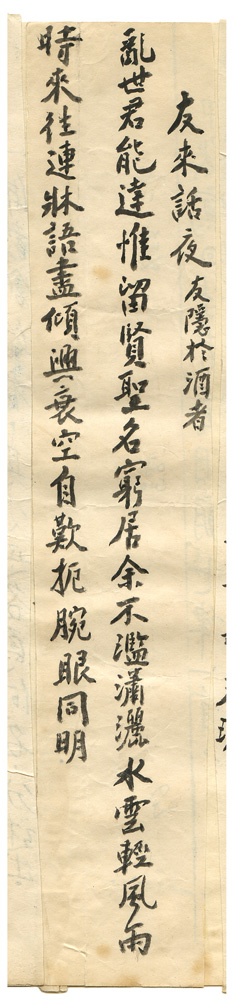 友來話夜 友隱於酒者
亂世君能達惟留賢聖名窮居余不濫瀟灑水雲輕風雨
時來往連牀語盡傾興衰空自歎扼腕眼同明